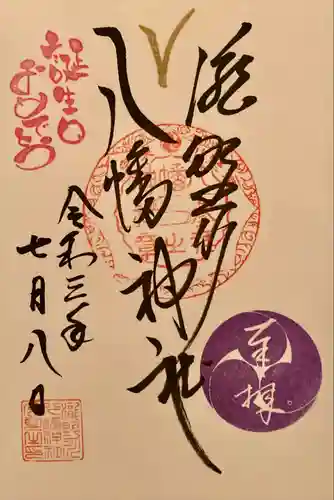 奉拝
瀧野川
八幡神社
令和三年
七月八日
誕生日
おめでとう